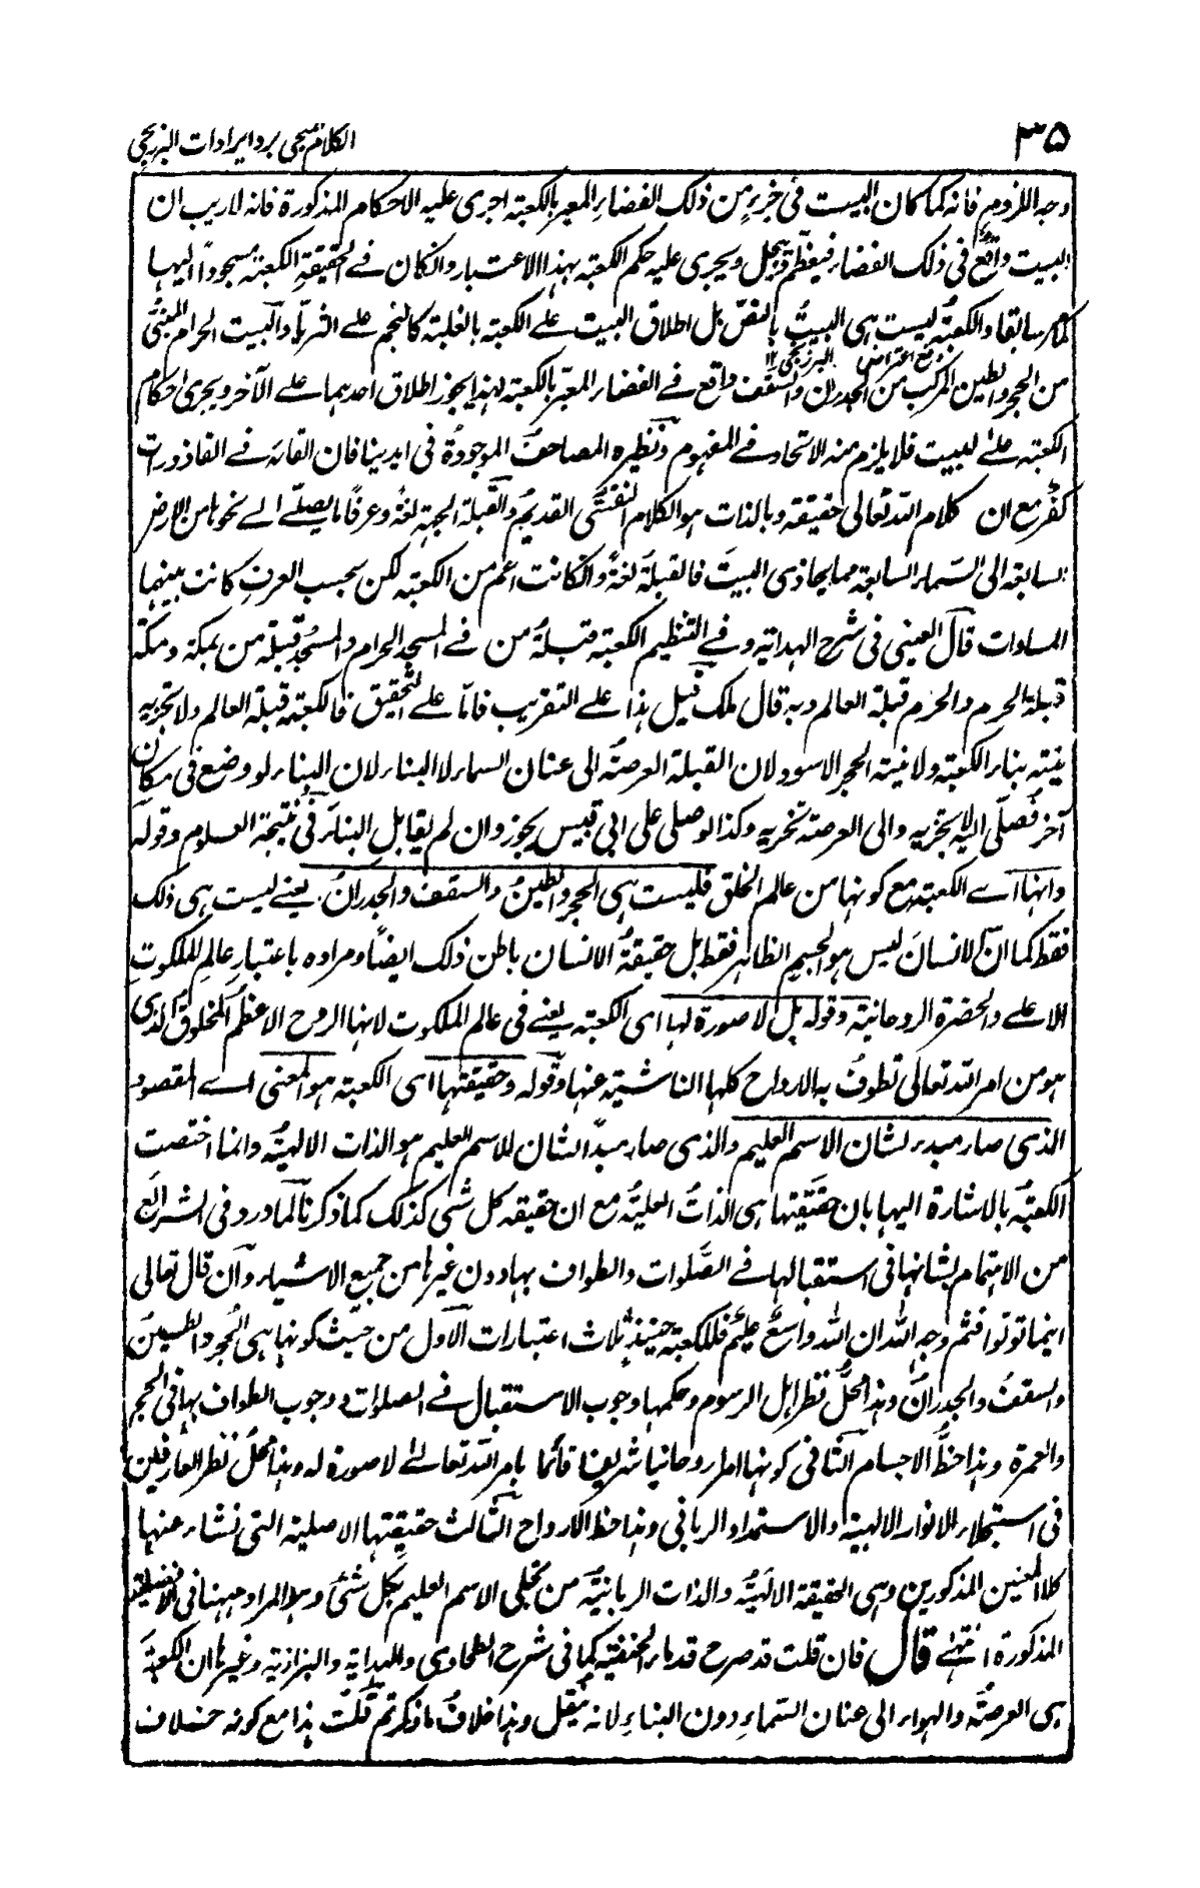 ۳۵
الكلام المنجي برد ايرادات البرزنجي
وجه اللزوم فانه كما كان البيت في جزء من ذلك الفضاء المعبر بالكعبة اجرى عليه الاحكام المذكورة فانه لاريب ان
البيت واقع في ذلك الفضاء فيعظم ويبجل ويجرى عليه حكم الكعبة بهذا الاعتبار وانكان فے الحقيقة الكعبة مسجودا اليها
كما مر سابقا والكعبة ليست هى البيت بالنص بل اطلاق البيت علے الكعبة بالغلبة كالنجم علے الثريا والبيت الحرام المبنى
دفع اعتراض البرزنجى ۱۲
من الحجر والطين المركب من الجدران والسقف واقع فے الفضاء المعبر بالكعبة لهذا يجوز اطلاق احدهما علے الآخر ويجرى احكام
الكعبة علے البيت فلا يلزم منه الاتحاد فے المفهوم ونظيره المصاحف الموجودة فى ايدينا فان القائه فے القاذورات
كفر مع ان كلام الله تعالى حقيقة وبالذات هو الكلام النفسى القديم والقبلة الجهة لغة وعرفا ما يصلے الے نحوها من الارض
السابعة الى السماء السابعة مما يحاذى البيت فالقبلة لغة وانكانت اعم من الكعبة لكن بحسب العرف كانت بينهما
المساوات قال العينى فى شرح الهداية وفے التنظيم الكعبة قبلة من فے المسجد الحرام والمسجد قبلة من بمكة ومكة
قبلة الحرم والحرم قبلة العالم وبه قال ملك قيل هذا علے التقريب فاما علے التحقيق فالكعبة قبلة العالم ولا تجزيه
نيته بناء الكعبة ولا نية الحجر الاسود لان القبلة العرصة الى عنان السماء لا البناء لان البناء لو وضع فى مكان
آخر فصلى اليه لا يجزيه والى العرصة تجزيه وكذا لو صلى على ابى قبيس يجوز وان لم يقابل البناء فى نتيجة العلوم وقوله
وانها اے الكعبة مع كونها من عالم الخلق فليست هى الحجر والطين والسقف والجدران يعنے ليست هى ذلك
فقط كما ان الانسان ليس هو الجسم الظاهر فقط بل حقيقة الانسان باطن ذلك ايضا ومراده باعتبار عالم الملكوت
الاعلے والحضرة الروحانية وقوله بل لا صورة لها اى الكعبة يعنے فى عالم الملكوت لانها الروح الاعظم المخلوق الذى
هو من امر الله تعالى تطوف به الارواح كلها الناشية عنها وقوله وحقيقتها اى الكعبة هو المعنى اے المقصود
الذى صار مبدء لشان الاسم العليم والذى صار مبدأ لشان الاسم العليم هو الذات الالهية وانما اختصت
الكعبة بالاشارة اليها بان حقيقتها هى الذات العلية مع ان حقيقة كل شى كذلك كما ذكرنا لما ورد فى الشرائع
من الاهتمام بشانها فى استقبالها فے الصلوات والطواف بها دون غيرها من جميع الاشياء وان قال تعالى
اينما تولوا فثم وجه الله ان الله واسع عليم فللكعبة حينئذ ثلاث اعتبارات الاول من حيث كونها هى الحجر والطين
والسقف والجدران وهذا محل نظر اهل الرسوم وحكمها وجوب الاستقبال فے الصلوات ووجوب الطواف بها فى الحج
والعمرة وهذا حظ الاجسام الثانى كونها امرا روحانيا شريفا قائما بامر الله تعالے لا صورة له وهذا محل نظر العارفين
فى استجلاء الانوار الالهية والاستمداد الربانى وهذا حظ الارواح الثالث حقيقتها الاصلية التى نشاء عنها
كلا المعنيين المذكورين وهى الحقيقة الالهية والذات الربانية من تجلى الاسم العليم بكل شئ وهو المراد ههنا فى الافضلية
المذكورة انتهے قال فان قلت قد صرح قدماء الحنفية كما فى شرح الطحاوى والهداية والبزازية وغيرها ان الكعبة
هى العرصة والهواء الى عنان السماء دون البناء لانه ينقل وهذا خلاف ما ذكرتم قلت هذا مع كونه خلاف